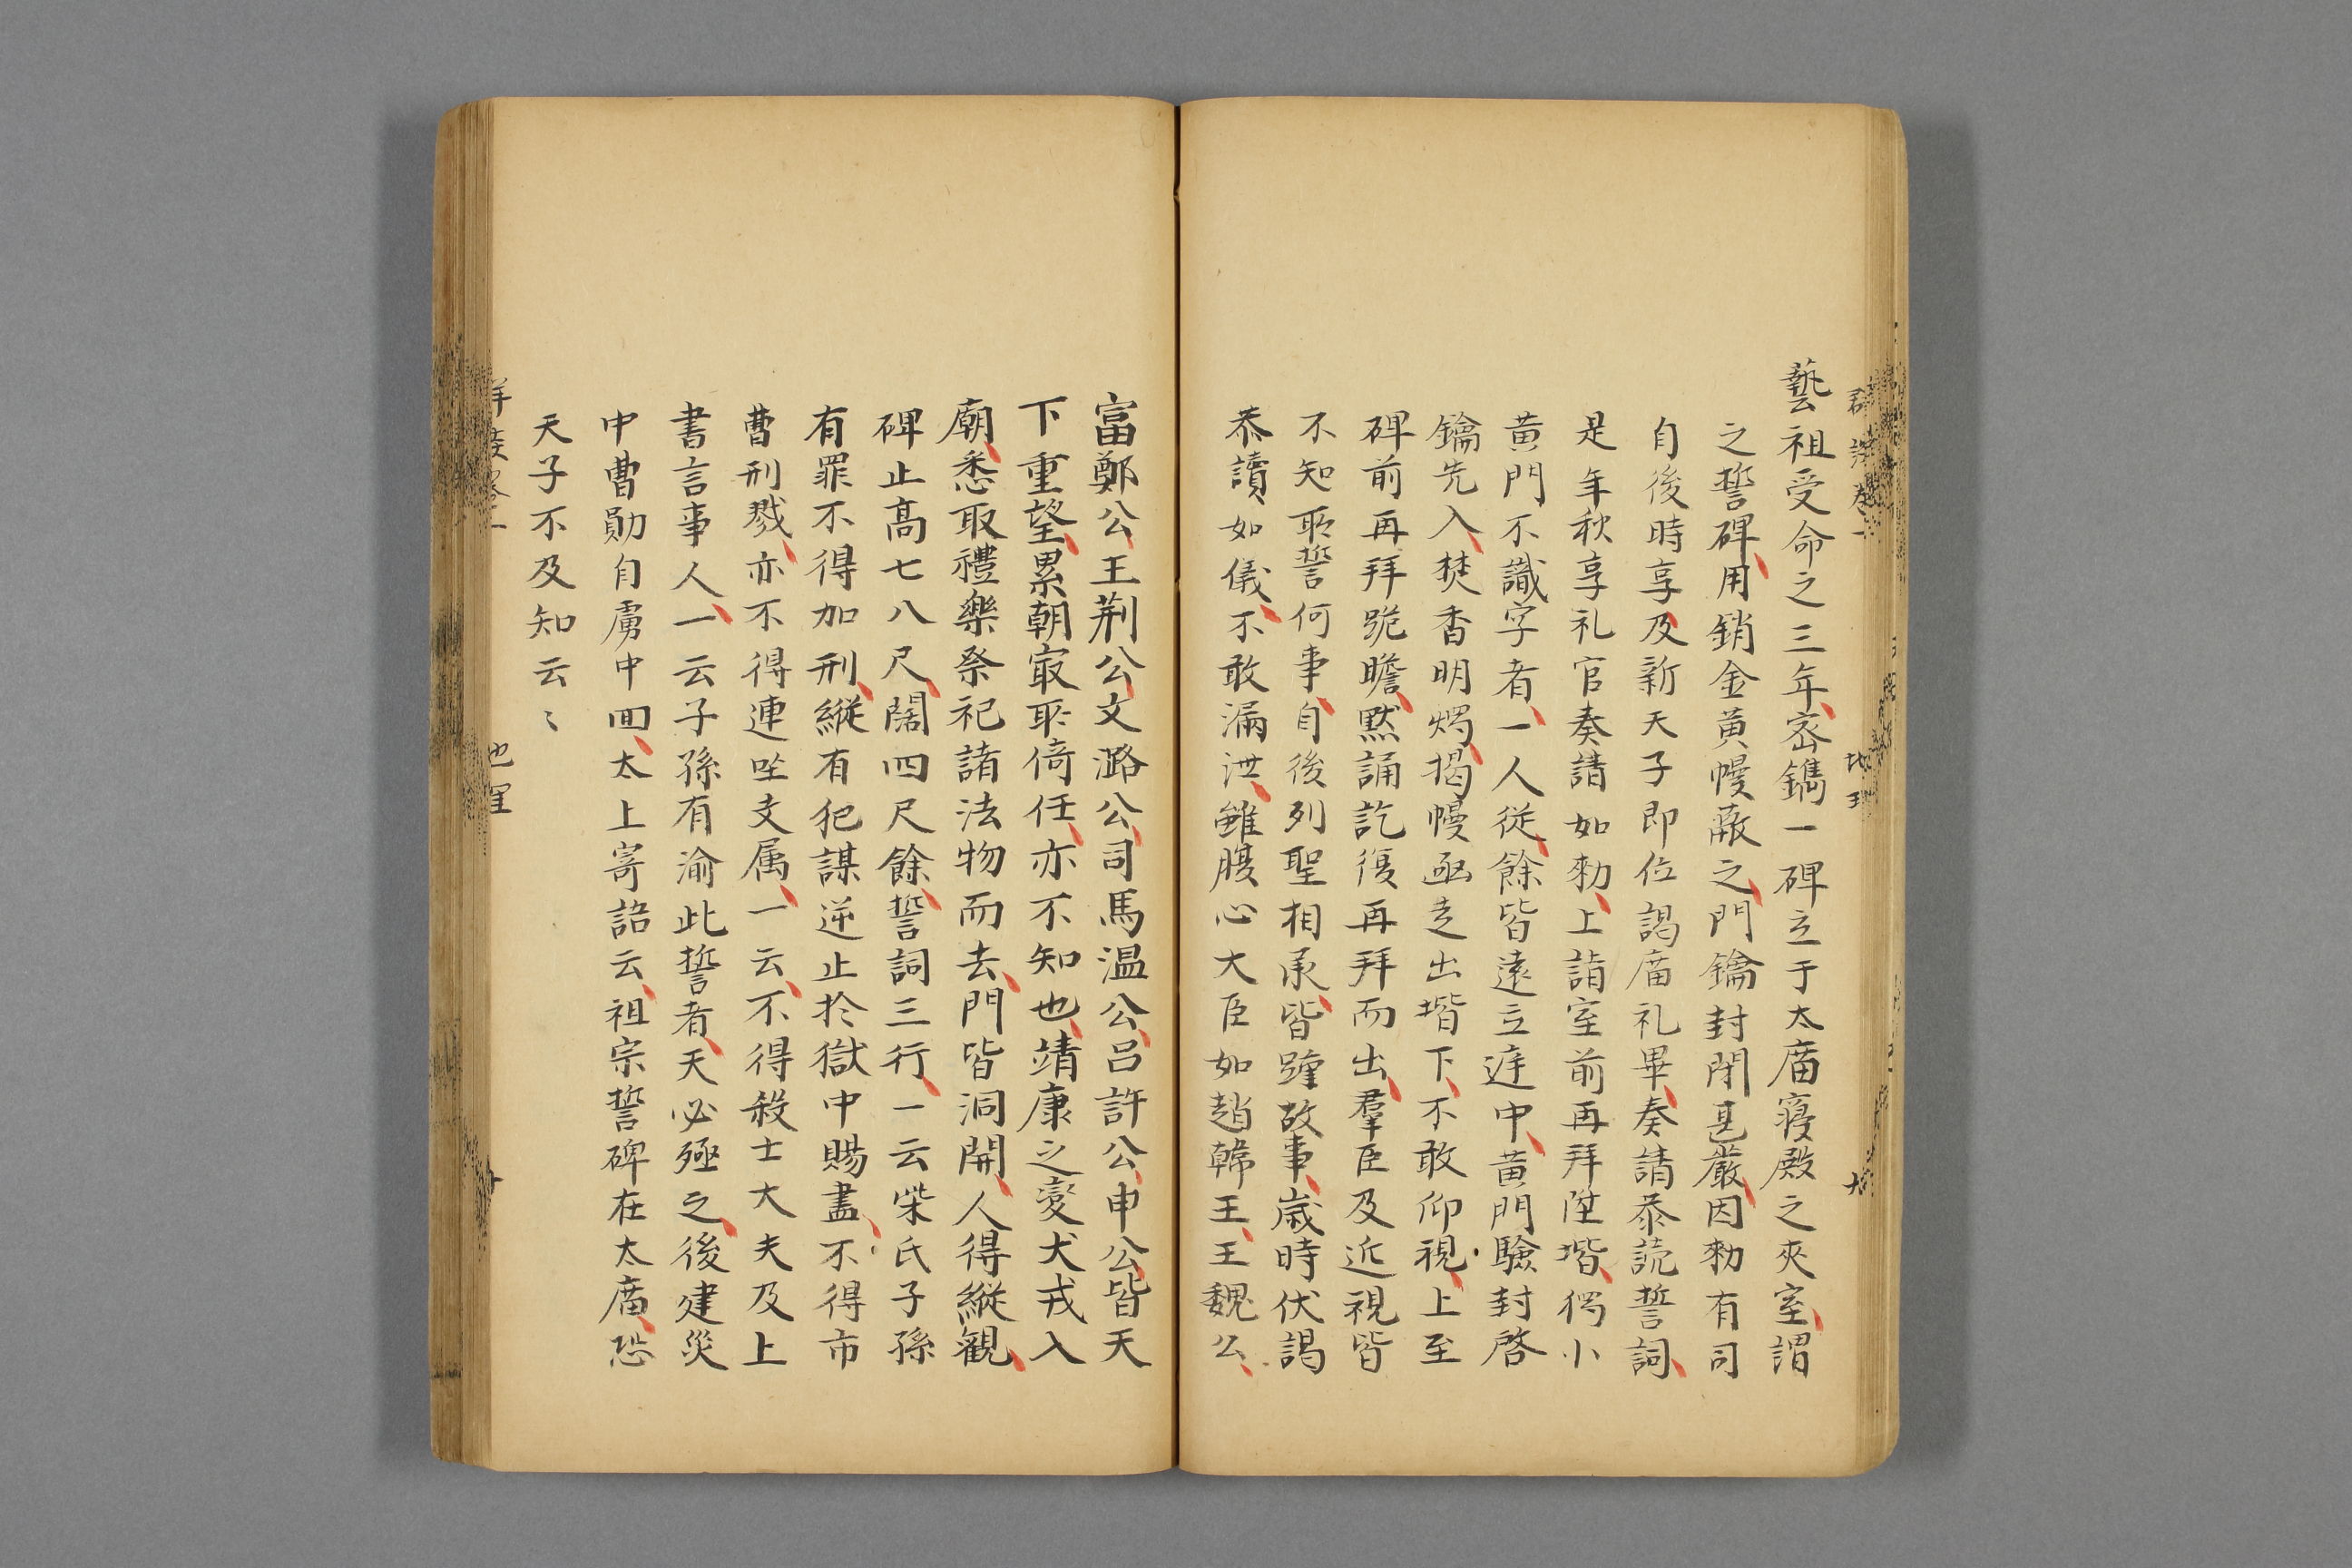 藝祖受命之三年宻鐫一碑立于太庿寝殿之夾室謂
之誓碑用銷金黄幔蔽之門鑰封閉甚嚴因勅有司
自後時享及新天子即位謁庿礼畢奏請恭読誓詞
是年秋享礼官奏請如勅上詣室前再拜陞堦獨小
黄門不識字者一人從餘皆遠立庭中黄門驗封啓
鑰先入焚香明燭揭幔亟走出堦下不敢仰視上至
碑前再拜跪瞻默誦訖復再拜而出羣臣及近視皆
不知所誓何事自後列聖相承皆踵故事歳時伏謁
恭讀如儀不敢漏泄雖腹心大臣如趙韓王王魏公
富鄭公王荆公文潞公司馬温公呂許公申公皆天
下重望累朝寂所倚任亦不知也靖康之變犬戎入
廟悉取禮樂祭祀諸法物而去門皆洞開人得縱観
碑止高七八尺闊四尺餘誓詞三行一云柴氏子孫
有罪不得加刑縱有犯謀逆止於獄中賜盡不得市
曹刑戮亦不得連坐支属一云不得殺士大夫及上
書言事人一云子孫有渝此誓者天必殛之後建災
中曹勛自虜中回太上寄語云祖宗誓碑在太庿恐
天子不及知云〻